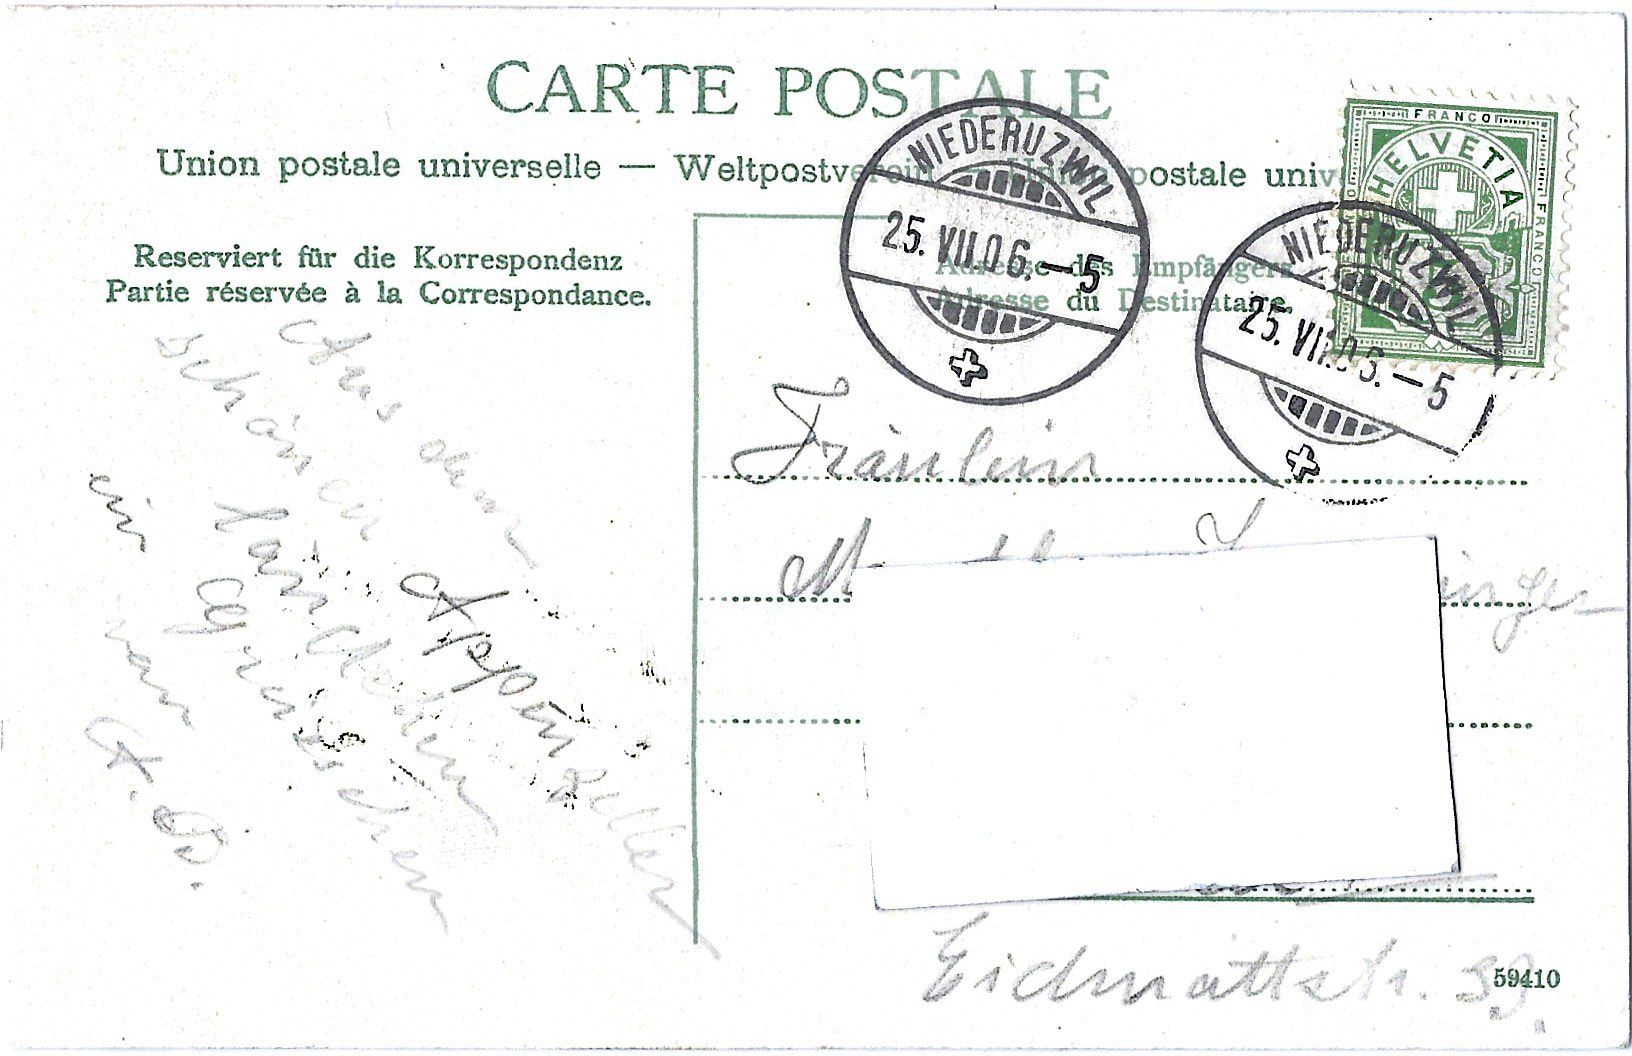 CARTE POSTALE
Union postale universelle — Weltpostverein — Union postale univ
Reserviert für die Korrespondenz
Partie réservée à la Correspondance.
Adresse des Empfängers.
Adresse du Destinataire.
FRANCO
HELVETIA
FRANCO
5
NIEDERUZWIL
25. VII. 06. — 5
NIEDERUZWIL
25. VII. 06. — 5
Aus dem
schönen Appenzeller
Ländchen
ein Grüsschen
von
A. B.
Fräulein
inger
Eidmattstr. 39.
59410